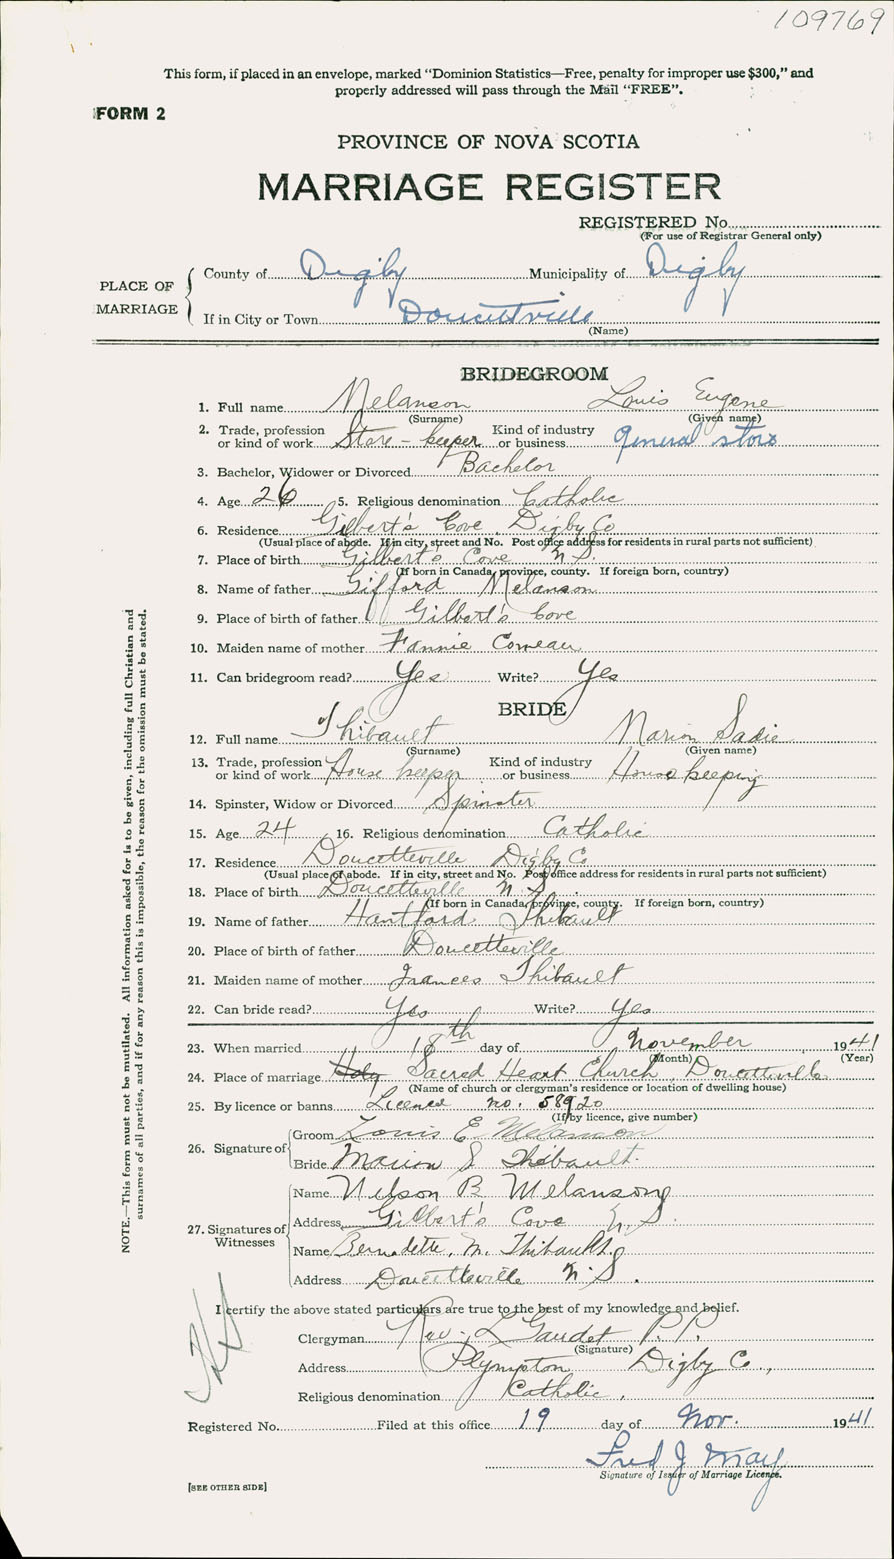 109769
This form, if placed in an envelope, marked "Dominion Statistics—Free, penalty for improper use $300," and
properly addressed will pass through the Mail "FREE".
FORM 2
PROVINCE OF NOVA SCOTIA
MARRIAGE REGISTER
REGISTERED No.
(For use of Registrar General only)
PLACE OF MARRIAGE
County of Digby Municipality of Digby
If in City or Town Doucettville
(Name)
BRIDEGROOM
1. Full name Melanson Louis Eugene
(Surname) (Given name)
2. Trade, profession or kind of work Store-keeper Kind of industry or business general store
3. Bachelor, Widower or Divorced Bachelor
4. Age 26 5. Religious denomination Catholic
6. Residence Gilbert's Cove, Digby Co
(Usual place of abode. If in city, street and No. Post office address for residents in rural parts not sufficient)
7. Place of birth Gilbert's Cove N.S.
(If born in Canada, province, county. If foreign born, country)
8. Name of father Gifford Melanson
9. Place of birth of father Gilbert's Cove
10. Maiden name of mother Fannie Comeau
11. Can bridegroom read? Yes Write? Yes
BRIDE
12. Full name Thibault Marion Sadie
(Surname) (Given name)
13. Trade, profession or kind of work House keeper Kind of industry or business House keeping
14. Spinster, Widow or Divorced Spinster
15. Age 24 16. Religious denomination Catholic
17. Residence Doucetteville Digby Co
(Usual place of abode. If in city, street and No. Post office address for residents in rural parts not sufficient)
18. Place of birth Doucetteville N.S.
(If born in Canada, province, county. If foreign born, country)
19. Name of father Hantford Thibault
20. Place of birth of father Doucetteville
21. Maiden name of mother Frances Thibault
22. Can bride read? Yes Write? Yes
23. When married 18th day of November 1941
(Month) (Year)
24. Place of marriage Holy Sacred Heart Church, Doucetteville
(Name of church or clergyman's residence or location of dwelling house)
25. By licence or banns Licence no. 58920
(If by licence, give number)
26. Signature of Groom Louis E Melanson
Bride Marion S Thibault.
27. Signatures of Witnesses
Name Nelson B Melanson
Address Gilbert's Cove N.S.
Name Bernadette, M. Thibault
Address Doucetteville N.S.
I certify the above stated particulars are true to the best of my knowledge and belief.
Clergyman Rev. L Gaudet P.P.
(Signature)
Address Plympton Digby Co.,
Religious denomination Catholic.
Registered No. Filed at this office 19 day of Nov. 1941
Fred J May
Signature of Issuer of Marriage Licence.
[SEE OTHER SIDE]
NOTE.—This form must not be mutilated. All information asked for is to be given, including full Christian and
surnames of all parties, and if for any reason this is impossible, the reason for the omission must be stated.